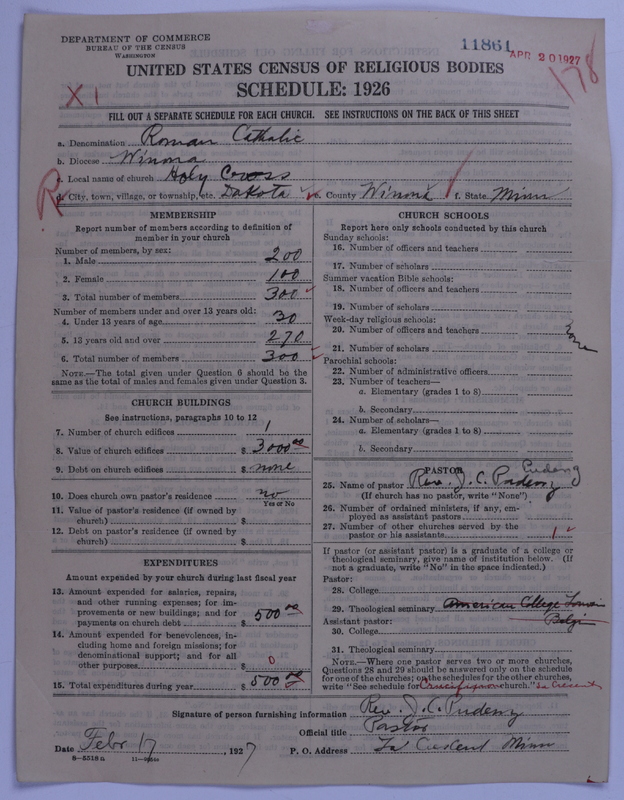 DEPARTMENT OF COMMERCE
BUREAU OF THE CENSUS
WASHINGTON
11861
APR 20 1927
178
UNITED STATES CENSUS OF RELIGIOUS BODIES
SCHEDULE: 1926
X 1
FILL OUT A SEPARATE SCHEDULE FOR EACH CHURCH. SEE INSTRUCTIONS ON THE BACK OF THIS SHEET
a. Denomination Roman Catholic
b. Diocese Winona
c. Local name of church Holy Cross
d. City, town, village, or township, etc. Dakota e. County Winona f. State Minn
R
MEMBERSHIP
Report number of members according to definition of
member in your church
Number of members, by sex:
1. Male 200
2. Female 100
3. Total number of members 300
Number of members under and over 13 years old:
4. Under 13 years of age 30
5. 13 years old and over 270
6. Total number of members 300
NOTE.—The total given under Question 6 should be the
same as the total of males and females given under Question 3.
CHURCH BUILDINGS
See instructions, paragraphs 10 to 12
7. Number of church edifices 1
8. Value of church edifices $ 3000 00
9. Debt on church edifices $ none
10. Does church own pastor's residence no
Yes or No
11. Value of pastor's residence (if owned by
church) $
12. Debt on pastor's residence (if owned by
church) $
EXPENDITURES
Amount expended by your church during last fiscal year
13. Amount expended for salaries, repairs,
and other running expenses; for im-
provements or new buildings; and for
payments on church debt $ 500 00
14. Amount expended for benevolences, in-
cluding home and foreign missions; for
denominational support; and for all
other purposes $ 0
15. Total expenditures during year $ 500 00
CHURCH SCHOOLS
Report here only schools conducted by this church
Sunday schools:
16. Number of officers and teachers
17. Number of scholars
Summer vacation Bible schools:
18. Number of officers and teachers
19. Number of scholars
Week-day religious schools:
20. Number of officers and teachers
21. Number of scholars
Parochial schools:
22. Number of administrative officers
23. Number of teachers—
a. Elementary (grades 1 to 8)
b. Secondary
24. Number of scholars—
a. Elementary (grades 1 to 8)
b. Secondary
PASTOR
25. Name of pastor Rev. J. C. Pudenz
(If church has no pastor, write "None")
26. Number of ordained ministers, if any, em-
ployed as assistant pastors
27. Number of other churches served by the
pastor or his assistants 1
If pastor (or assistant pastor) is a graduate of a college or
theological seminary, give name of institution below. (If
not a graduate, write "No" in the space indicated.)
Pastor:
28. College
29. Theological seminary American College
Assistant pastor:
30. College
31. Theological seminary
NOTE.—Where one pastor serves two or more churches,
Questions 28 and 29 should be answered only on the schedule
for one of the churches; on the schedules for the other churches,
write "See schedule for Crucifixion church." La Crescent
Signature of person furnishing information Rev. J. C. Pudenz
Official title Pastor
Date Febr 17, 1927 P. O. Address La Crescent Minn
8—5518 a